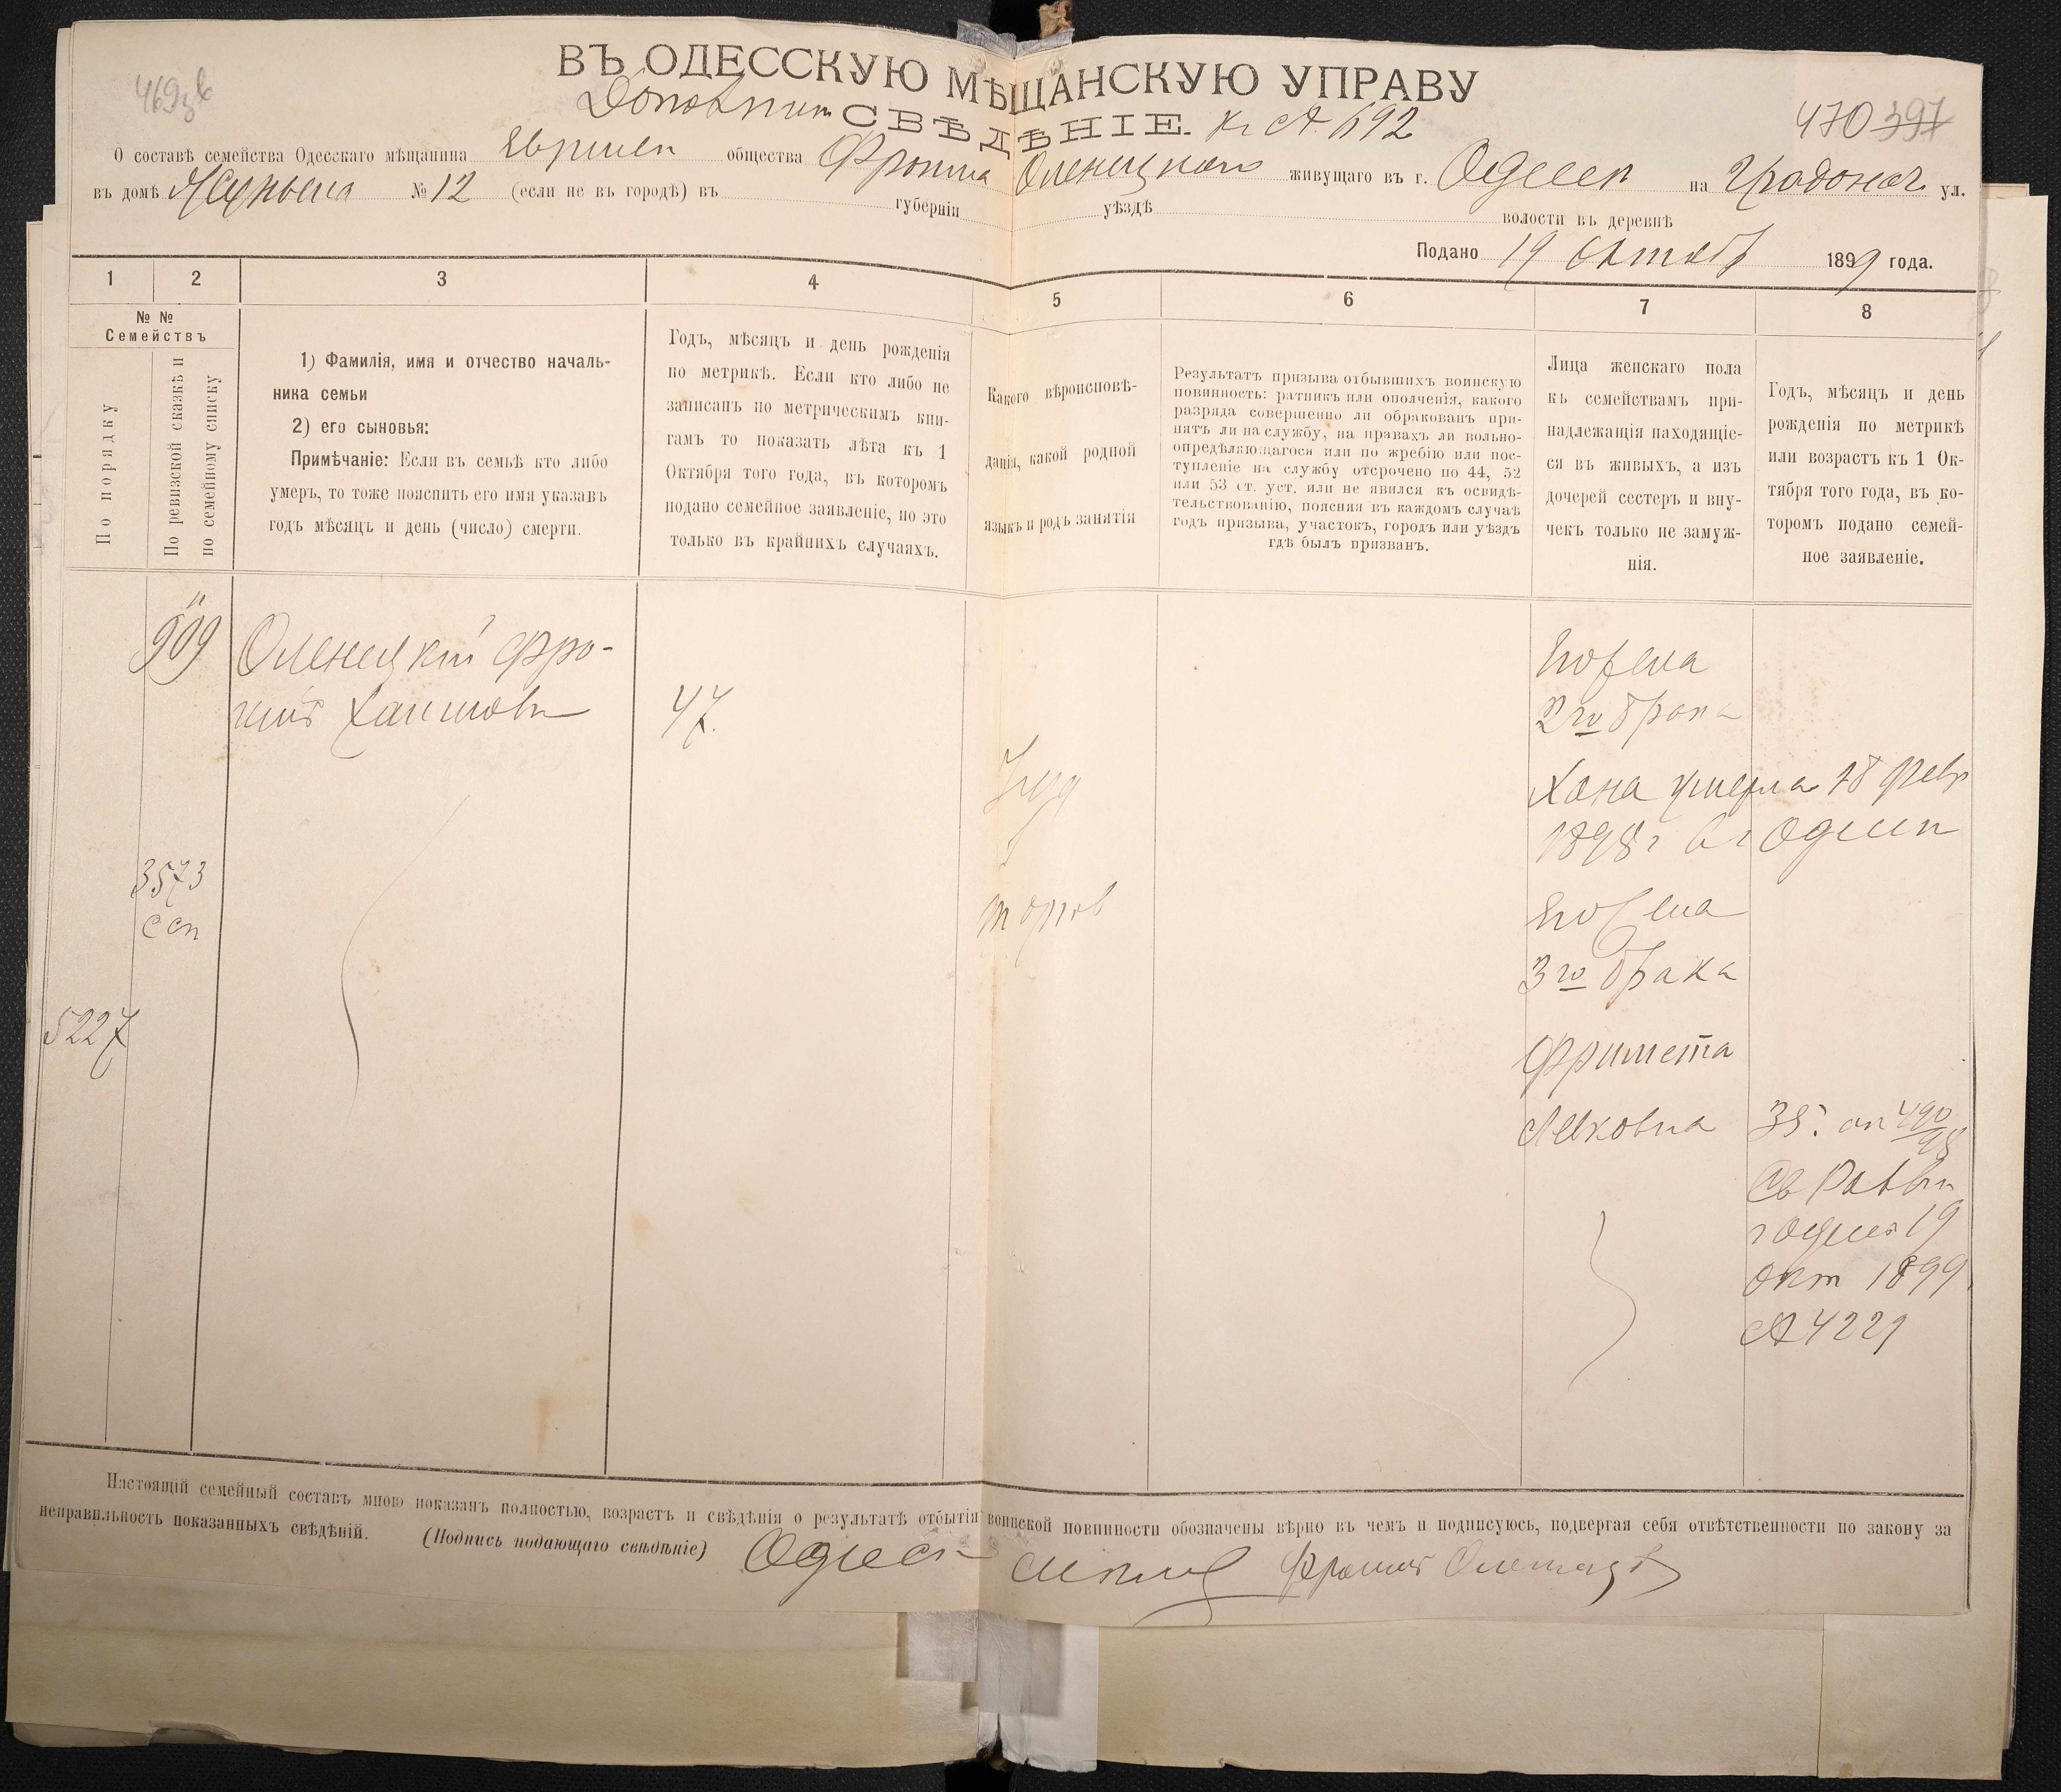 ВЪ ОДЕССКУЮ МѢЩАНСКУЮ УПРАВУ
СВѢДѢНІЕ. 692
470 397
О составѣ семейства Одесскаго мѣщанина Евреиск общества Фроима Оленецкаго живущаго въ г. Одессѣ на Градонач. ул.
въ домѣ № 12 (если не въ городѣ) въ губерніи уѣздѣ волости въ деревнѣ
Подано 19 Октяб 1899 года.
1 2 3 4 5 6 7 8
№ №
Семействъ
По порядку
По ревизской сказкѣ и
по семейному списку
1) Фамилія, имя и отчество началь-
ника семьи
2) его сыновья:
Примѣчаніе: Если въ семьѣ кто либо
умеръ, то тоже пояснить его имя указавъ
годъ мѣсяцъ и день (число) смерти.
Годъ, мѣсяцъ и день рожденія
по метрикѣ. Если кто либо не
записанъ по метрическимъ кни-
гамъ то показать лѣта къ 1
Октября того года, въ которомъ
подано семейное заявленіе, но это
только въ крайнихъ случаяхъ.
Какого вѣроисповѣ-
данія, какой родной
языкъ и родъ занятія
Результатъ призыва отбывшихъ воинскую
повинность: ратникъ или ополченія, какого
разряда совершенно ли обракованъ при-
нятъ ли на службу, на правахъ ли вольно-
опредѣляющагося или по жребію или пос-
тупленіе на службу отсрочено по 44, 52
или 53 ст. уст. или не явился къ освидѣ-
тельствованію, поясняя въ каждомъ случаѣ
годъ призыва, участокъ, городъ или уѣздъ
гдѣ былъ призванъ.
Лица женскаго пола
къ семействамъ при-
надлежащія находящіе-
ся въ живыхъ, а изъ
дочерей сестеръ и вну-
чекъ только не замуж-
нія.
Годъ, мѣсяцъ и день
рожденія по метрикѣ
или возрастъ къ 1 Ок-
тября того года, въ ко-
торомъ подано семей-
ное заявленіе.
909
Оленецкій Фро-
имъ Хаимовъ
47.
Іуд
торгов
3573
ссп
5227
Его жена
2го брака
Хана умерла 18 Февр
1898 г Одессѣ
Его жена
3го брака
Фримета
Лейковна
35. 490/98
Св Раввин
г Одессы 19
Окт 1899
№ 4221
Настоящій семейный составъ мною показанъ полностью, возрастъ и свѣдѣнія о результатѣ отбытія воинской повинности обозначены вѣрно въ чемъ и подписуюсь, подвергая себя отвѣтственности по закону за
неправильность показанныхъ свѣдѣній. (Подпись подающаго свѣдѣніе) Одесс Фроимъ